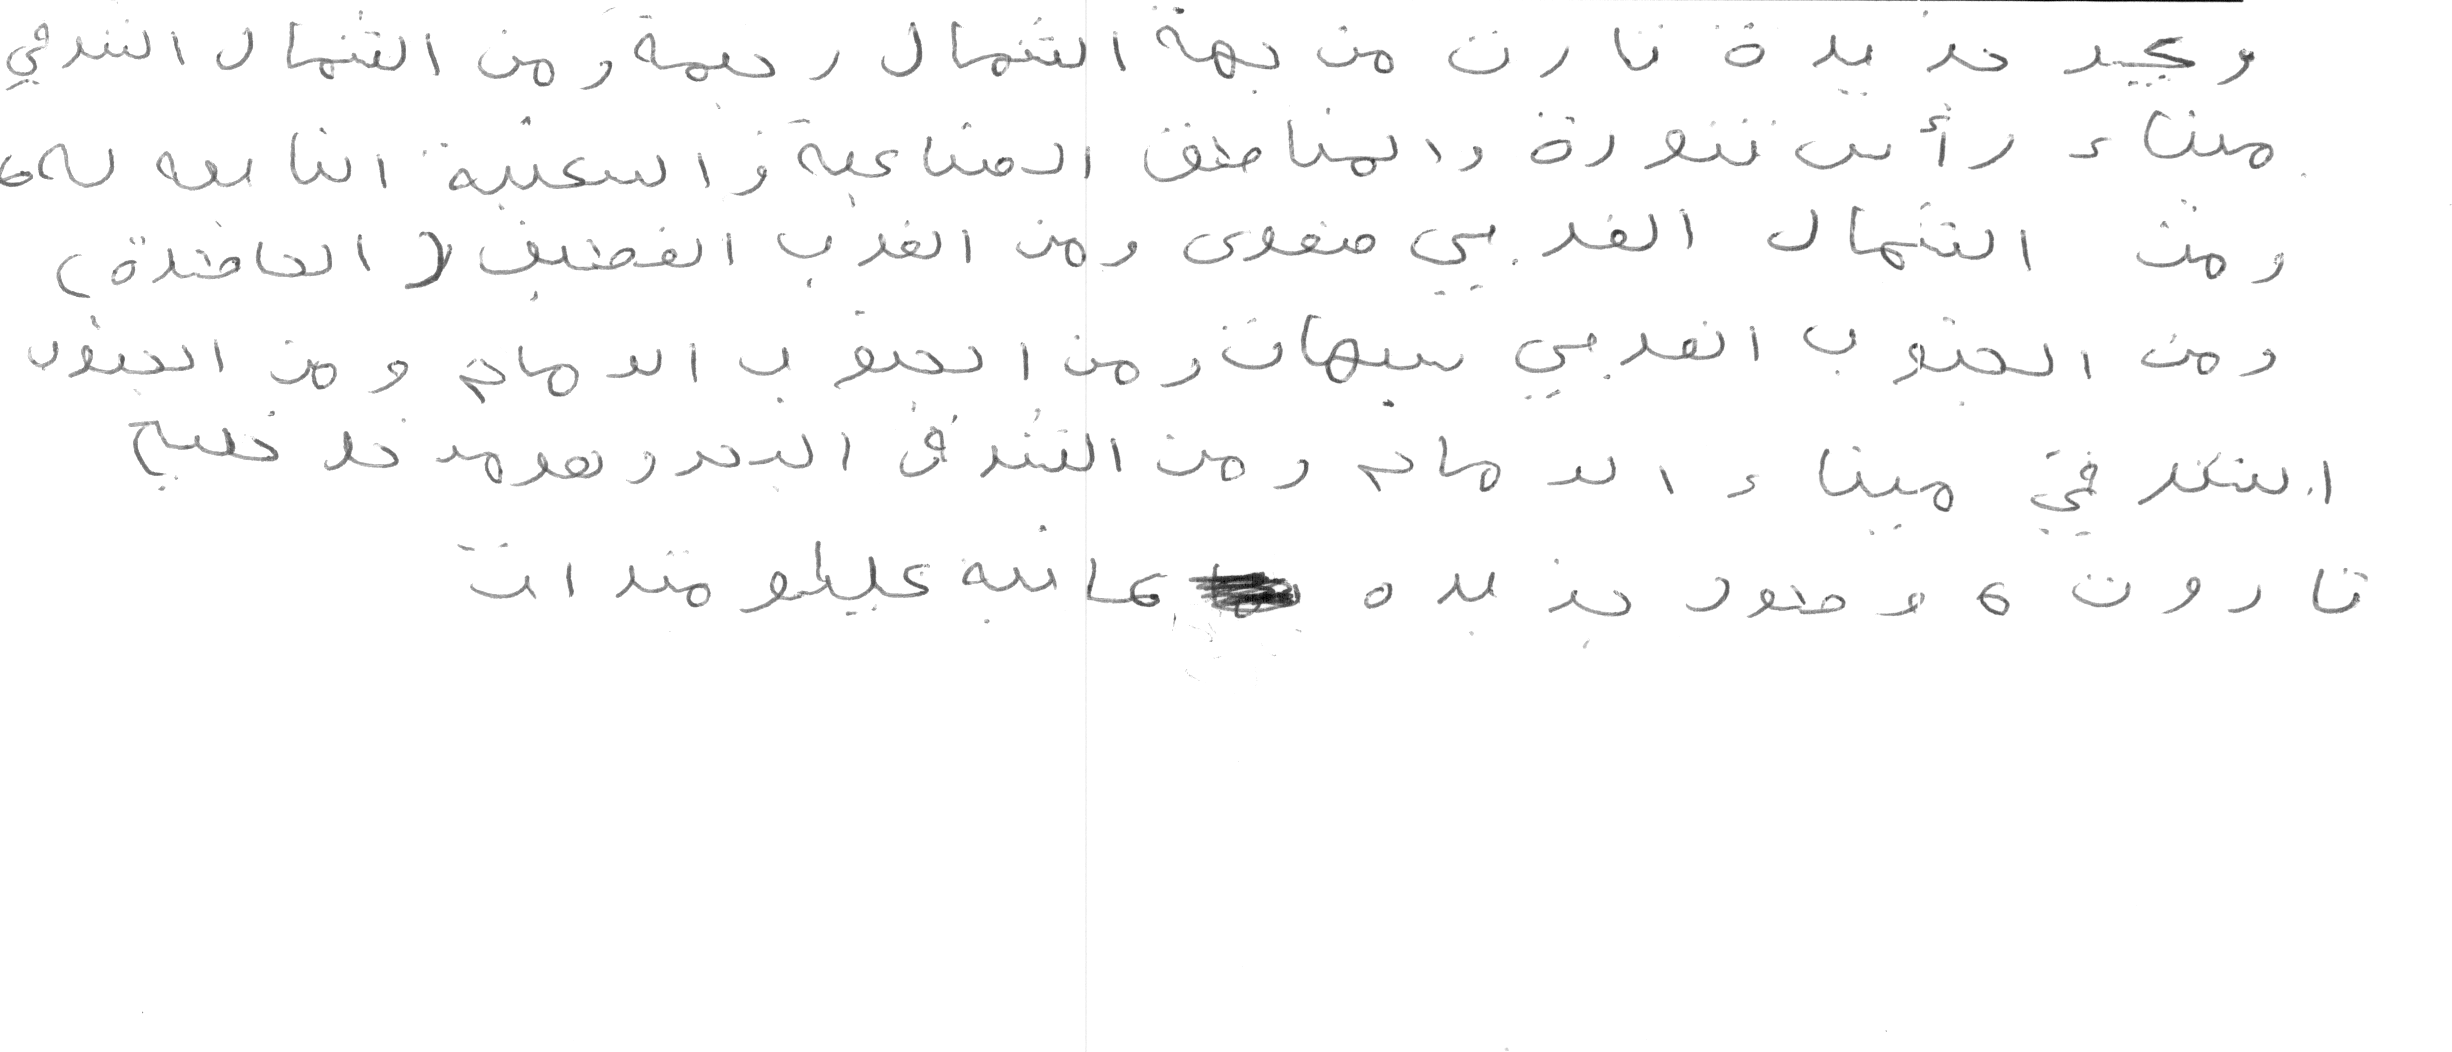 ويحد جزيرة تارت من جهة الشمال رحيمة ومن الشمال الشرقي
ميناء رأس تنورة والمناطق الصناعية والسكنية التابعه له،
ومن الشمال الغربي صفوى ومن الغرب القطيف (الحاضرة)
ومن الجنوب الغربي سيهات ومن الجنوب الدمام ومن الجنوب
الشرقي ميناء الدمام ومن الشرق البحر وهو مدخل خليج
تاروت، وطول جزيره ثمانية كيلو مترات